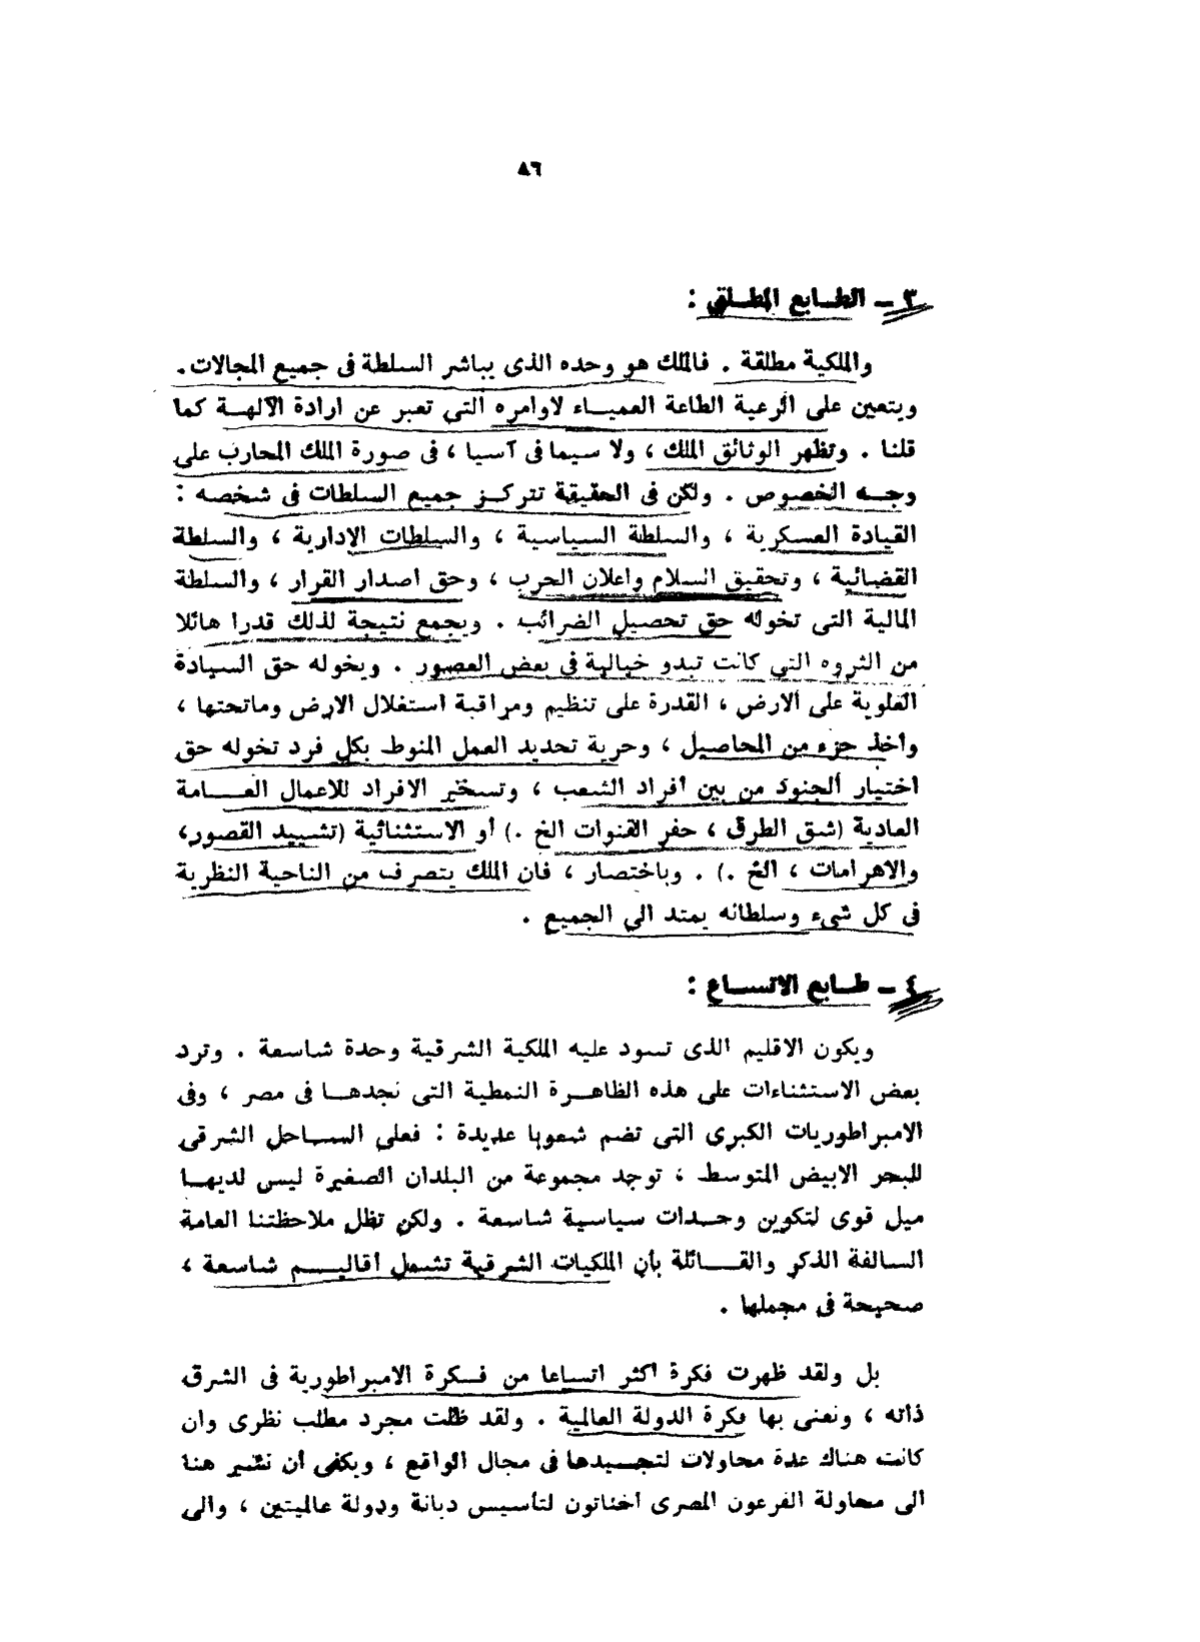 ٨٦
٣ ــ الطــابع المطــلق :
والملكية مطلقة . فالملك هو وحده الذى يباشر السلطة فى جميع المجالات .
ويتعين على الرعية الطاعة العميــاء لاوامره التي تعبر عن ارادة الآلهــة كما
قلنا . وتظهر الوثائق الملك ، ولا سيما فى آسيا ، فى صورة الملك المحارب على
وجــه الخصوص . ولكن فى الحقيقة تتركــز جميع السلطات فى شخصه :
القيادة العسكرية ، والسلطة السياسية ، والسلطات الإدارية ، والسلطة
القضائية ، وتحقيق السلام واعلان الحرب ، وحق اصدار القرار ، والسلطة
المالية التى تخوله حق تحصيل الضرائب . ويجمع نتيجة لذلك قدرا هائلا
من الثروه التي كانت تبدو خيالية فى بعض العصور . ويخوله حق السيادة
العلوية على الارض ، القدرة على تنظيم ومراقبة استغلال الارض وماتحتها ،
وأخذ جزء من المحاصيل ، وحرية تحديد العمل المنوط بكل فرد تخوله حق
اختيار الجنود من بين أفراد الشعب ، وتسخير الافراد للاعمال العــــامة
العادية (شق الطرق ، حفر القنوات الخ .) أو الاستثنائية (تشييد القصور،
والاهرامات ، الخ .) . وباختصار ، فان الملك يتصرف من الناحية النظرية
فى كل شىء وسلطانه يمتد الى الجميع .
٤ ــ طــابع الاتســـاع :
ويكون الاقليم الذى تسود عليه الملكية الشرقية وحدة شاسعة . وترد
بعض الاستثناءات على هذه الظاهــرة النمطية التى نجدهــا فى مصر ، وفى
الامبراطوريات الكبرى التى تضم شعوبا عديدة : فعلى الســاحل الشرقى
للبحر الابيض المتوسط ، توجد مجموعة من البلدان الصغيرة ليس لديهــا
ميل قوى لتكوين وحــدات سياسية شاسعة . ولكن تظل ملاحظتنا العامة
السالفة الذكر والقــــائلة بأن الملكيات الشرقية تشمل أقاليــــم شاسعة ،
صحيحة فى مجملها .
بل ولقد ظهرت فكرة اكثر اتساعا من فــكرة الامبراطورية فى الشرق
ذاته ، ونعنى بها فكرة الدولة العالمية . ولقد ظلت مجرد مطلب نظرى وان
كانت هناك عدة محاولات لتجــسيدها فى مجال الواقع ، ويكفى أن نشير هنا
الى محاولة الفرعون المصرى اخناتون لتأسيس ديانة ودولة عالميتين ، والى